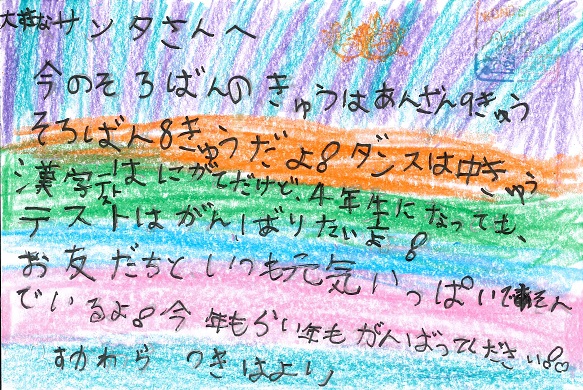 大事なサンタさんへ
今のそろばんのきゅうはあんざん9きゅう
そろばん8きゅうだよ8ダンスは中きゅう
漢字テストはにがてだけど、4年生になっても、
テストはがんばりたいよ8
お友だちといつも元気いっぱいで遊そん
でいるよ8今年もらい年もがんばってくださいね♡
すがわら つきはより